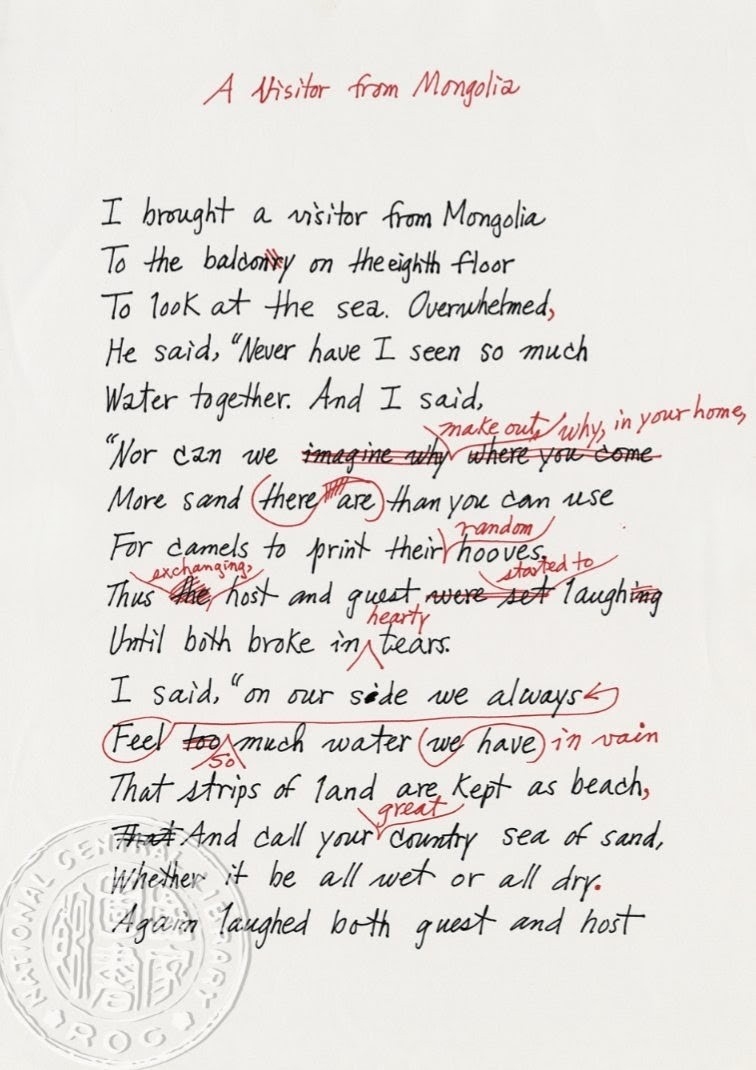 A Visitor from Mongolia
I brought a visitor from Mongolia
To the balcony on the eighth floor
To look at the sea. Overwhelmed,
He said, "Never have I seen so much
Water together. And I said,
make out, why, in your home,
"Nor can we imagine why where you come
More sand there are than you can use
random
For camels to print their hooves.
exchanging, started to
Thus the host and guest were set laughing
hearty
Until both broke in tears.
I said, "on our side we always
Feel too much water we have in vain
so
That strips of land are kept as beach,
great
That And call your country sea of sand,
Whether it be all wet or all dry.
Again laughed both guest and host
NATIONAL CENTRAL LIBRARY
ROC